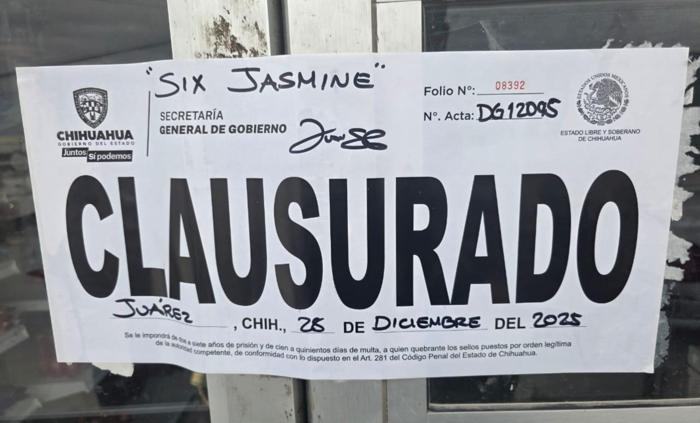 "SIX JASMINE"
Folio Nº: 08392
Nº. Acta: DG12095
CHIHUAHUA
GOBIERNO DEL ESTADO
Juntos Sí podemos
SECRETARÍA
GENERAL DE GOBIERNO
ESTADOS UNIDOS MEXICANOS
ESTADO LIBRE Y SOBERANO
DE CHIHUAHUA
CLAUSURADO
JUÁREZ, CHIH., 28 DE DICIEMBRE DEL 2025
Se le impondrá de dos a siete años de prisión y de cien a quinientos días de multa, a quien quebrante los sellos puestos por orden legítima
de la autoridad competente, de conformidad con lo dispuesto en el Art. 281 del Código Penal del Estado de Chihuahua.